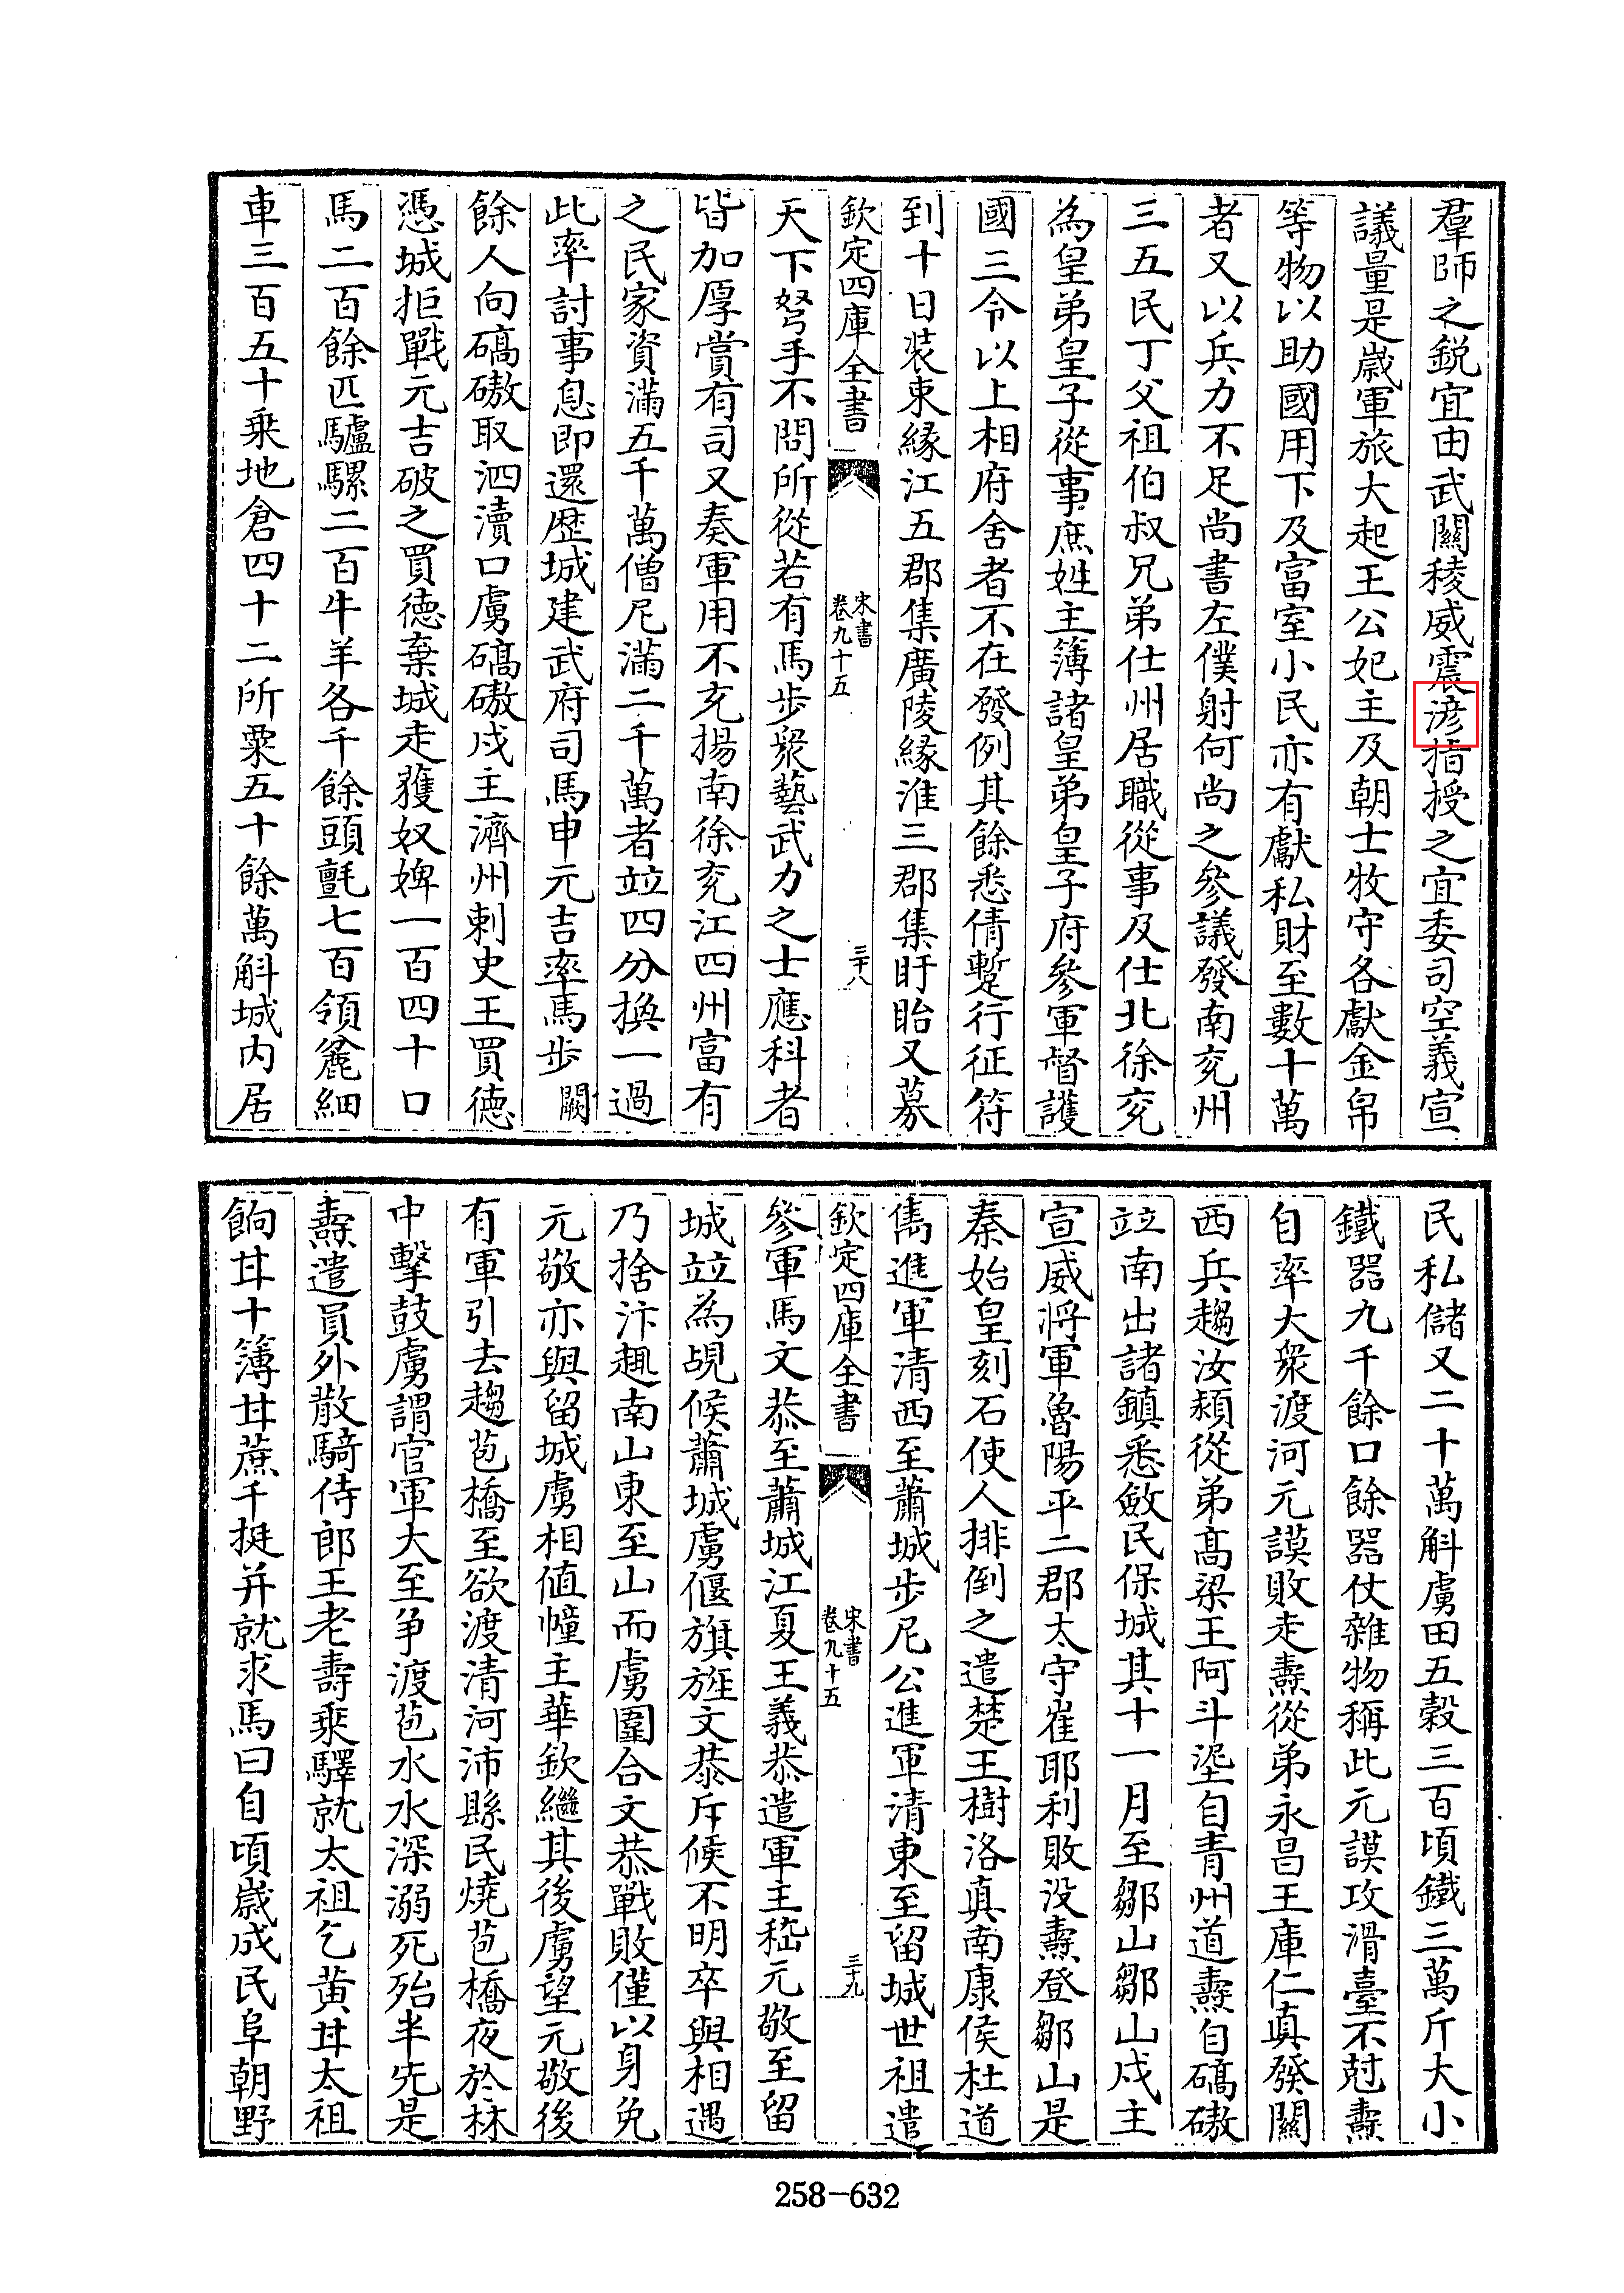 羣師之鋭宜由武關稜威震指授之宜委司空義宣
議量是嵗軍旅大起王公妃主及朝士牧守各獻金帛
等物以助國用下及富室小民亦有獻私財至數十萬
者又以兵力不足尚書左僕射何尚之參議發南兖州
三五民丁父祖伯叔兄弟仕州居職從事及仕北徐兖
為皇弟皇子從事庶姓主簿諸皇弟皇子府參軍督護
國三令以上相府舍者不在發例其餘悉倩蹔行征符
到十日装束縁江五郡集廣陵縁淮三郡集盱眙又募
欽定四庫全書
宋書
卷九十五
三十八
天下弩手不問所從若有馬步衆藝武力之士應科者
皆加厚賞有司又奏軍用不充揚南徐兖江四州富有
之民家資滿五千萬僧尼滿二千萬者竝四分換一過
此率討事息即還歴城建武府司馬申元吉率馬步闕
餘人向碻磝取泗瀆口虜碻磝戍主濟州刺史王買德
憑城拒戰元吉破之買德棄城走獲奴婢一百四十口
馬二百餘匹驢騾二百牛羊各千餘頭氈七百領麄細
車三百五十乗地倉四十二所粟五十餘萬斛城内居
民私儲又二十萬斛虜田五穀三百頃鐵三萬斤大小
鐵器九千餘口餘器仗雜物稱此元謨攻滑臺不尅燾
自率大衆渡河元謨敗走燾從弟永昌王庫仁真發關
西兵趨汝潁從弟髙梁王阿斗埿自青州道燾自碻磝
竝南出諸鎮悉斂民保城其十一月至鄒山鄒山戍主
宣威將軍魯陽平二郡太守崔耶利敗没燾登鄒山是
秦始皇刻石使人排倒之遣楚王樹洛真南康侯杜道
雋進軍清西至蕭城步尼公進軍清東至留城世祖遣
欽定四庫全書
宋書
卷九十五
三十九
參軍馬文恭至蕭城江夏王義恭遣軍主嵇元敬至留
城竝為覘候蕭城虜偃旗旌文恭斥候不明卒與相遇
乃捨汴趣南山東至山而虜圍合文恭戰敗僅以身免
元敬亦與留城虜相値幢主華欽繼其後虜望元敬後
有軍引去趨苞橋至欲渡清河沛縣民燒苞橋夜於林
中擊鼓虜謂官軍大至爭渡苞水水深溺死殆半先是
燾遣員外散騎侍郎王老壽乗驛就太祖乞黄甘太祖
餉甘十簿甘蔗千挺并就求馬曰自頃嵗成民阜朝野
258-632